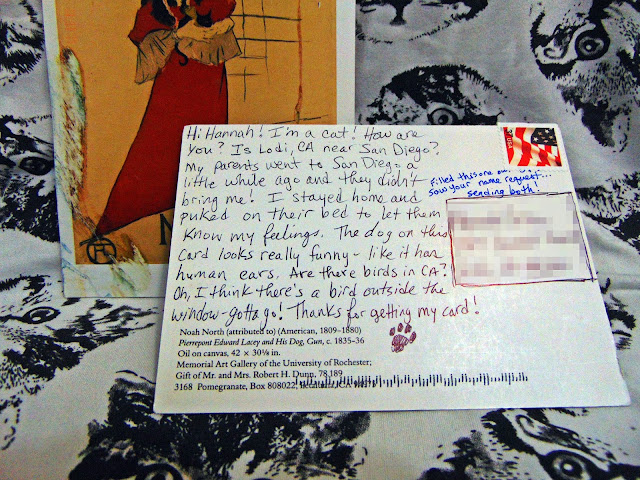 Hi Hannah! I'm a cat! How are
you? Is Lodi, CA near San Diego?
My parents went to San Diego a
little while ago and they didn't
bring me! I stayed home and
puked on their bed to let them
know my feelings. The dog on this
card looks really funny - like it has
human ears. Are there birds in CA?
Oh, I think there's a bird outside the
window - gotta go! Thanks for getting my card!
Filled this one
saw your name request...
sending both!
Noah North (attributed to) (American, 1809–1880)
Pierrepont Edward Lacey and His Dog, Gun, c. 1835-36
Oil on canvas, 42 × 30⅛ in.
Memorial Art Gallery of the University of Rochester;
Gift of Mr. and Mrs. Robert H. Dunn, 78.189
3168 Pomegranate, Box 808022, CA